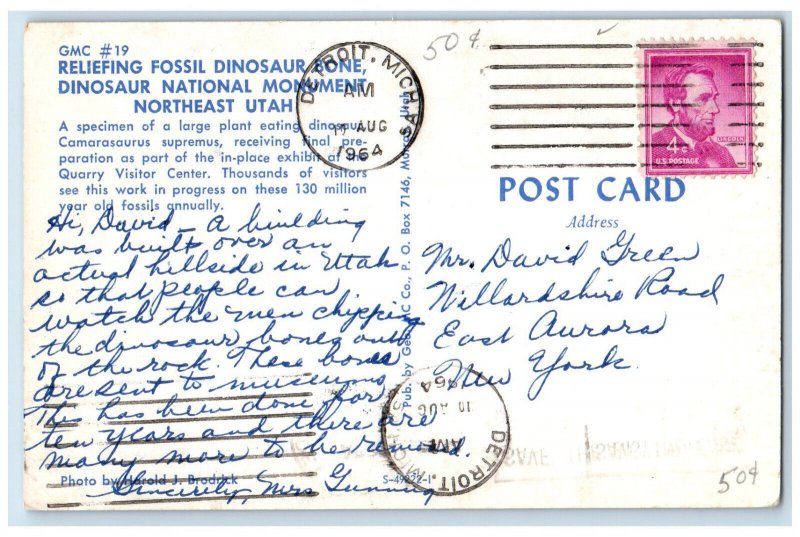 GMC #19
RELIEFING FOSSIL DINOSAUR BONE,
DINOSAUR NATIONAL MONUMENT
NORTHEAST UTAH
A specimen of a large plant eating dinosaur,
Camarasaurus supremus, receiving final pre-
paration as part of the in-place exhibit at the
Quarry Visitor Center. Thousands of visitors
see this work in progress on these 130 million
year old fossils annually.
Hi, David – a building
was built over an
actual hillside in Utah
so that people can
watch the men chipping
the dinosaur bones out
of the rock. These bones
are sent to museums
This has been done for
ten years and there are
many more to be removed.
Sincerely, Mrs Gunning
Photo by Harold J. Brodrick
S-49822-1
Pub. by GMC Co., P. O. Box 7146, Murray, Utah
DETROIT, MICH
AM
11 AUG
1964
50¢
4c
LINCOLN
U.S. POSTAGE
POST CARD
Address
Mr. David Green
Willardshire Road
East Aurora
New York
DETROIT
AM
10 AUG
1964
SAVE
50¢